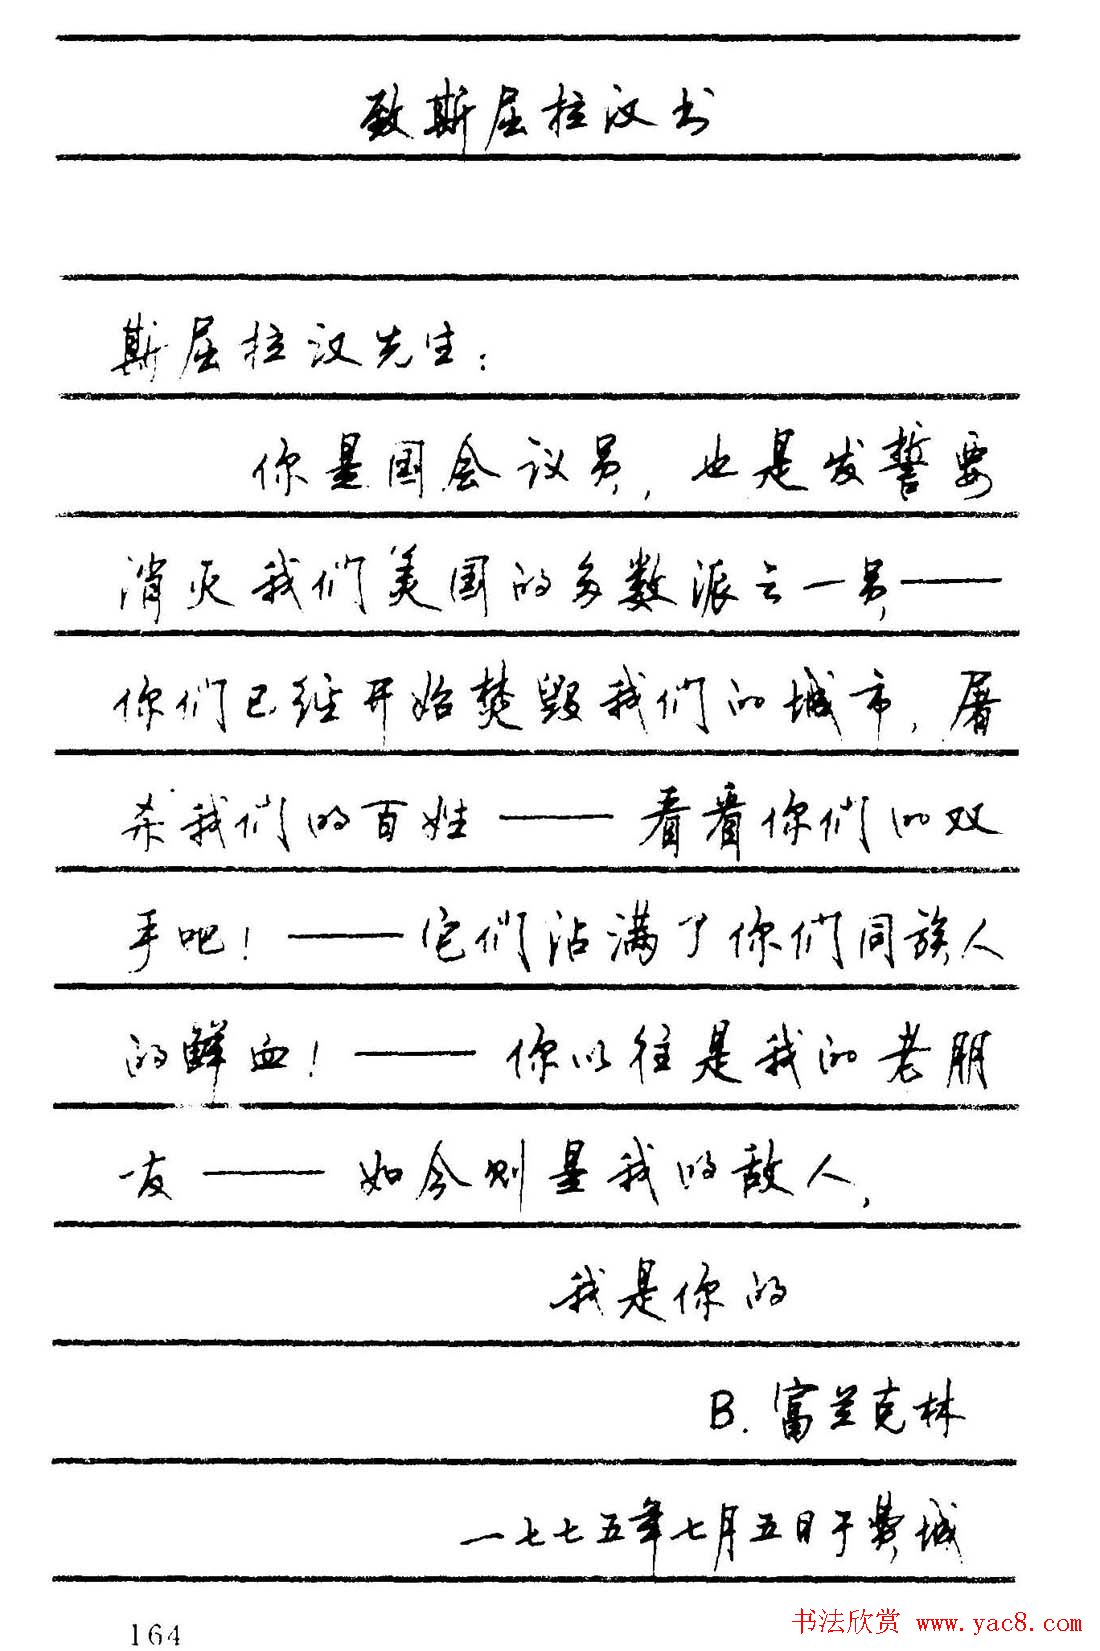 致斯屈拉汉书
斯屈拉汉先生：
你是国会议员，也是发誓要
消灭我们美国的多数派之一员——
你们已经开始焚毁我们的城市，屠
杀我们的百姓——看看你们的双
手吧！——它们沾满了你们同族人
的鲜血！——你以往是我的老朋
友——如今则是我的敌人，
我是你的
B.富兰克林
一七七五年七月五日于费城
164
书法欣赏 www.yac8.com